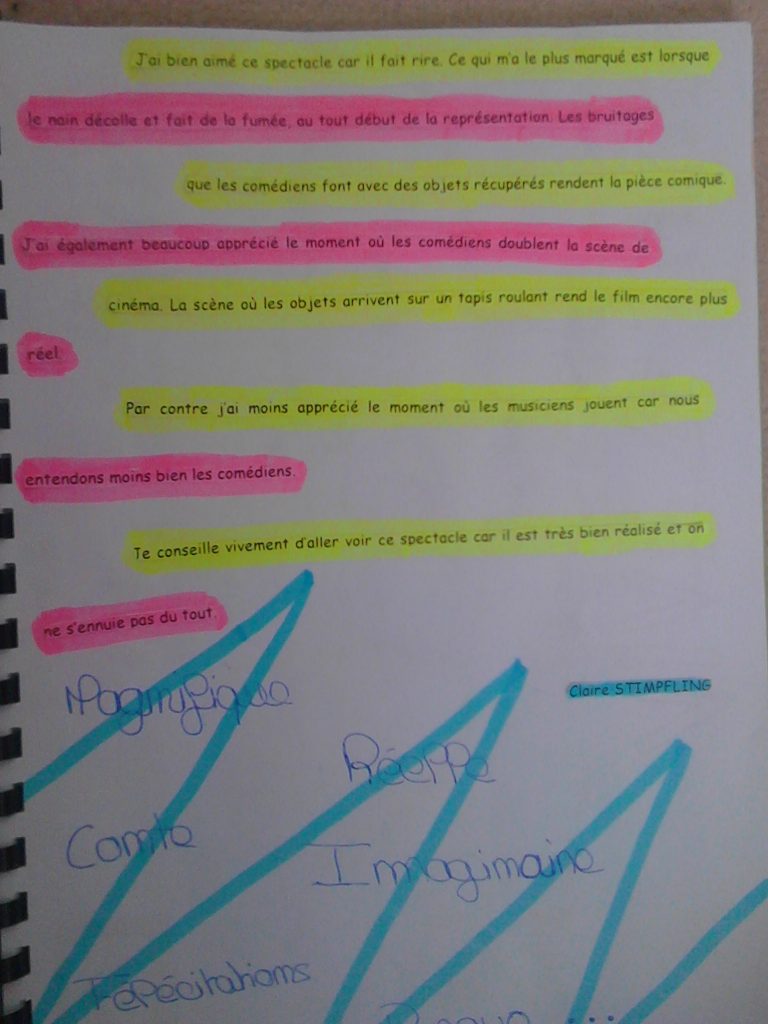 J'ai bien aimé ce spectacle car il fait rire. Ce qui m'a le plus marqué est lorsque
le nain décolle et fait de la fumée, au tout début de la représentation. Les bruitages
que les comédiens font avec des objets récupérés rendent la pièce comique.
J'ai également beaucoup apprécié le moment où les comédiens doublent la scène de
cinéma. La scène où les objets arrivent sur un tapis roulant rend le film encore plus
réel.
Par contre j'ai moins apprécié le moment où les musiciens jouent car nous
entendons moins bien les comédiens.
Te conseille vivement d'aller voir ce spectacle car il est très bien réalisé et on
ne s'ennuie pas du tout.
Claire STIMPFLING
Magnifique
Réelle
Comte
Imaginaire